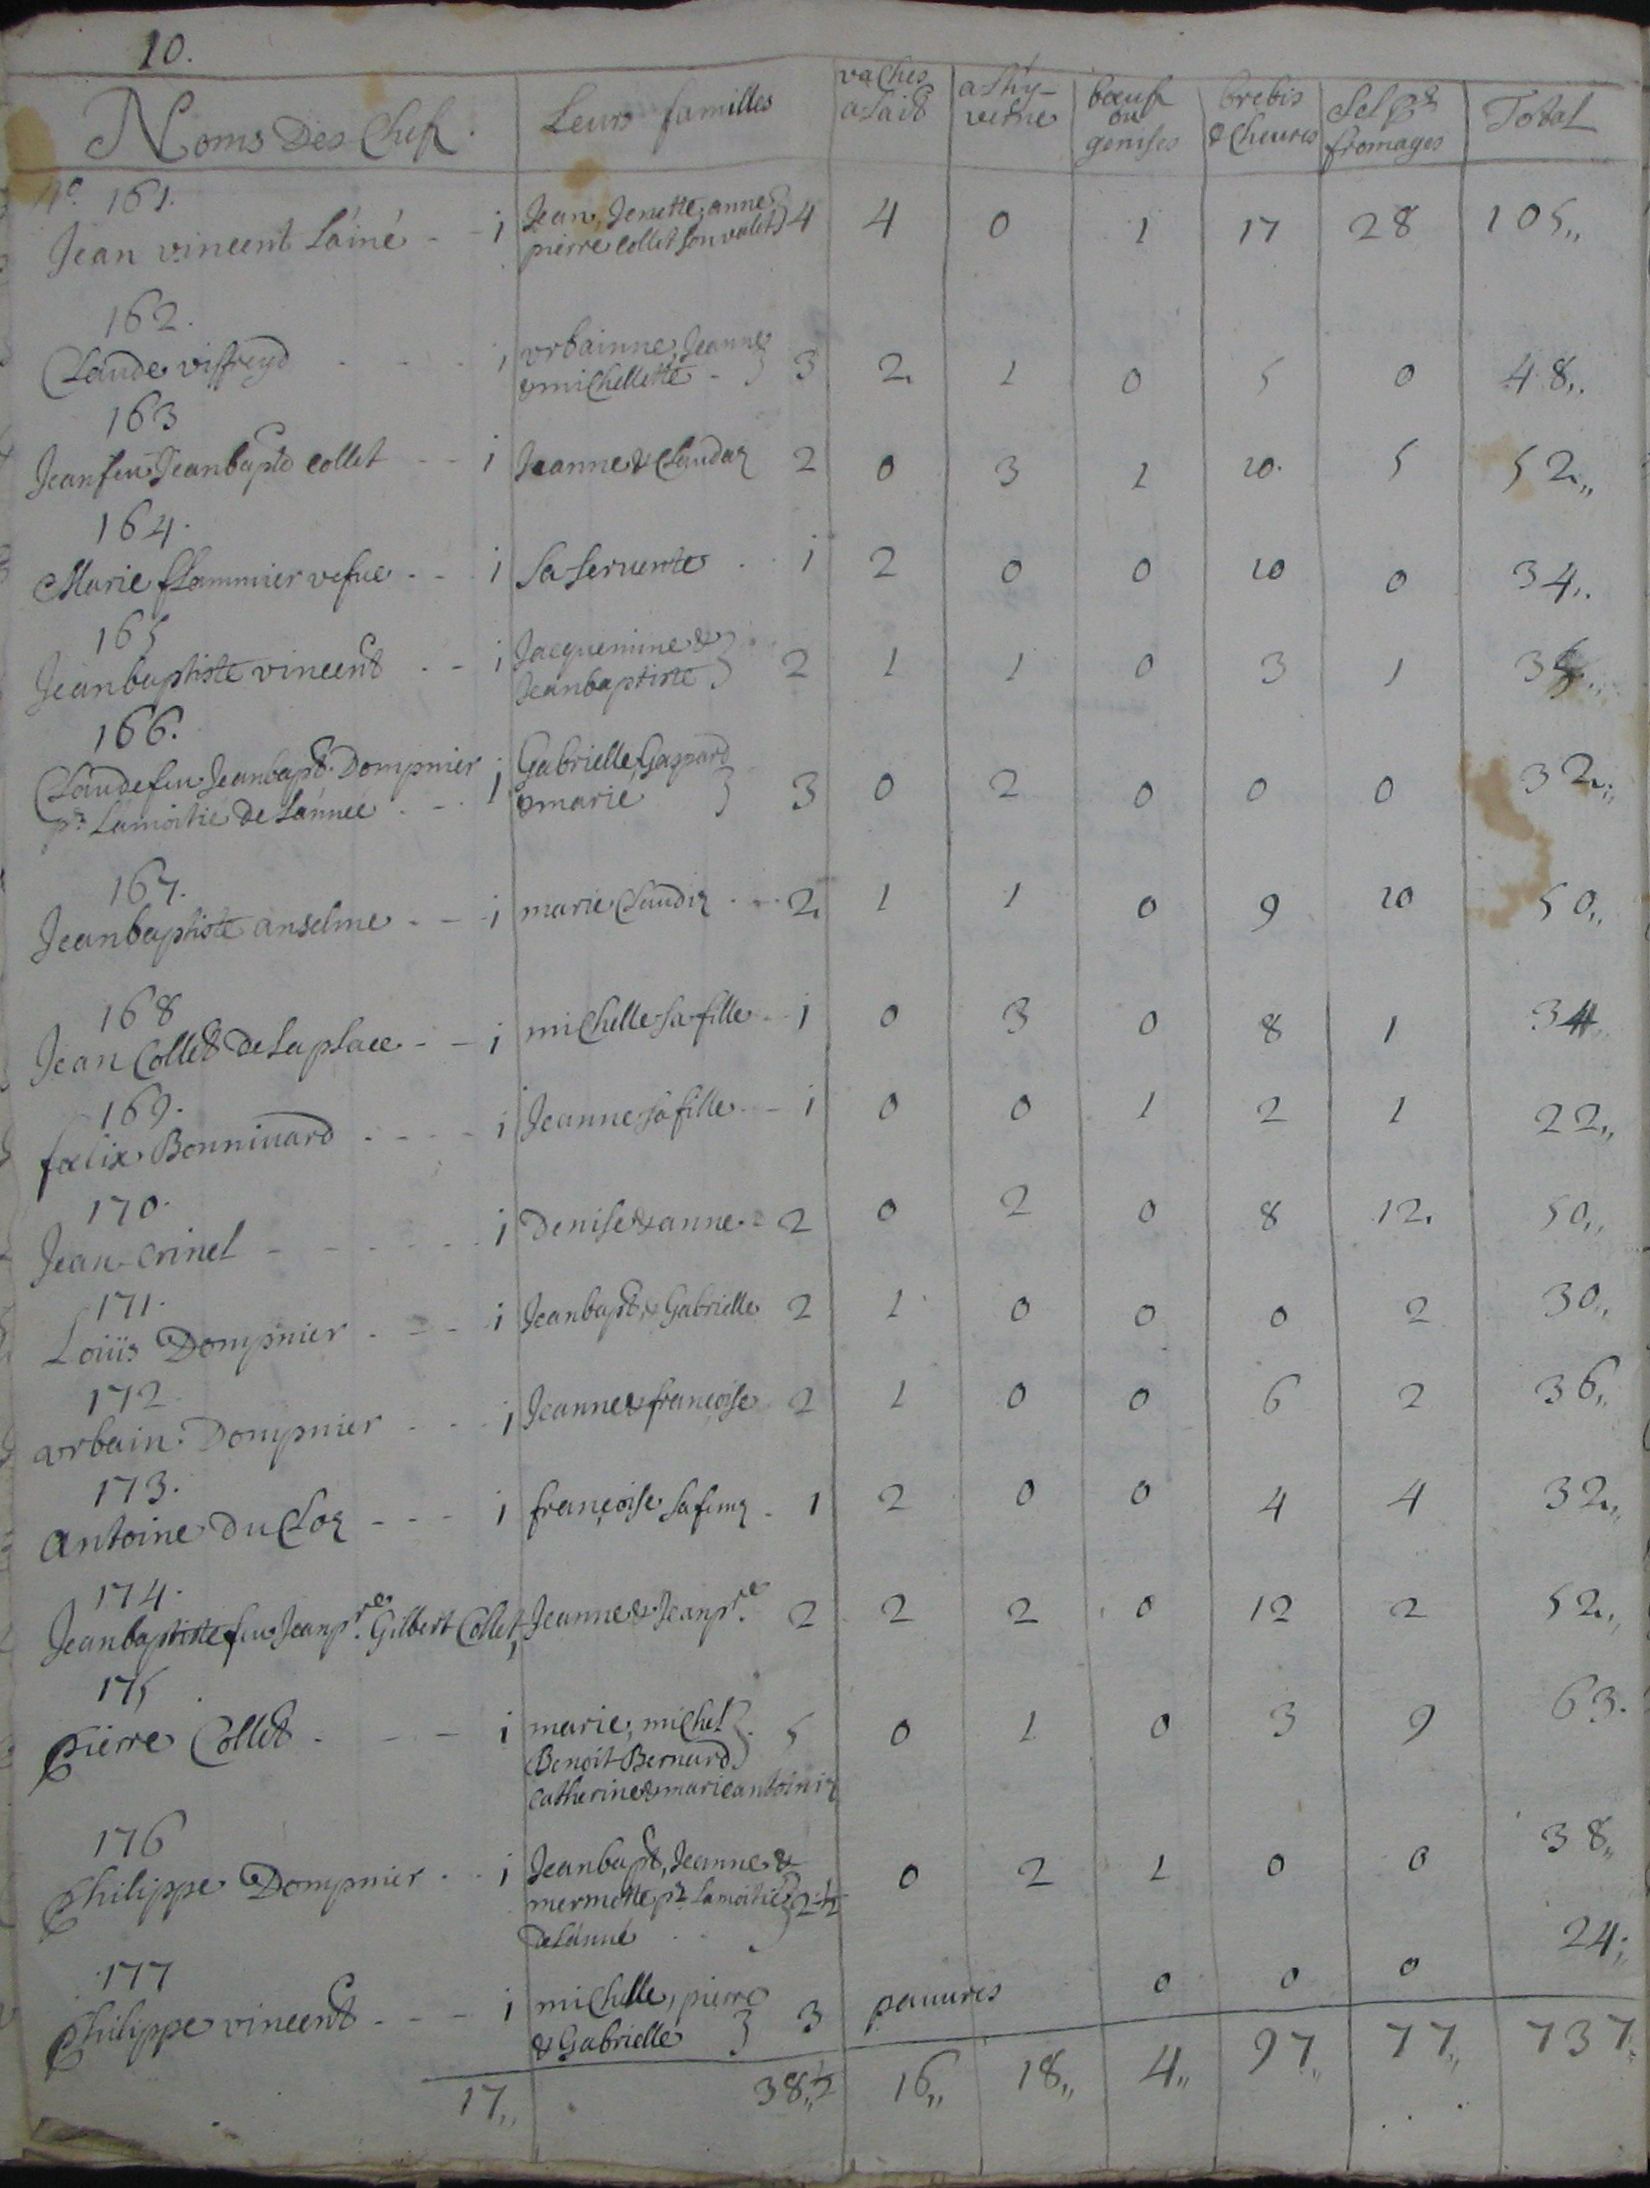 10.
Noms Des Chefs. Leurs familles vaches a lait a Lhy- verne bœufs ou genises brebis & cheures Sel pr fromages Total
No. 161.
Jean vincent Láiné - - i Jean, Jenette, anne & pierre collet son valet} 4 4 0 1 17 28 105,,
162.
Claude viffreyd - - - i urbainne, Jeanne & michellette - } 3 2 1 0 5 0 48,,
163
Jean feu Jeanbapte collet - - i Jeanne & Claudaz 2 0 3 1 10. 5 52,,
164.
Marie flammier vefue - - i Sa seruente . . i 2 0 0 10 0 34,,
165
Jeanbaptiste vincent . - i Jacquemine & Jeanbaptiste } 2 1 1 0 3 1
166.
Claude feu Jeanbapt. Dompnier
pr Lamoitié de Lánnée . - . i Gabrielle, Gaspard & marie } 3 0 2 0 0 0 32,,
167.
Jeanbaptiste anselme - - i marie Claudiz . . . 2 1 1 0 9 10 50,,
168
Jean Collet De La place - - i michelle sa fille - i 0 3 0 8 1 34
169.
fœlix Bonniuard . - - - i Jeanne sa fille - - i 0 0 1 2 1 22,,
170.
Jean Crinel - - - - - i Denise & anne - 2 0 2 0 8 12. 50,,
171.
Loüis Dompnier . - - i Jeanbapt. & Gabrielle 2 1 0 0 0 2 30,,
172
urbain Dompnier . . . i Jeanne & françoise 2 1 0 0 6 2 36,,
173.
Antoine Du Cloz - - - i françoise sa femz - 1 2 0 0 4 4 32,,
174.
Jeanbaptiste feu Jeanpre. Gilbert Collet, Jeanne & Jeanpre. 2 2 2 0 12 2 52,,
175
Pierre Collet . - - i marie, michel} . 5 0 1 0 3 9 63.
Benoit Bernard
catherine & marie antoiniz
176
Philippe Dompnier . . i Jeanbapt, Jeanne & 0 2 1 0 0 38,,
mermette pr Lamoitié} 2 ½
de Lánné . .
177
Philippe vincent - - - i michelle, pierre & Gabrielle } 3 pauures 0 0 0 24,,
17,, 38,,½ 16,, 18,, 4,, 97,, 77,, 737,,